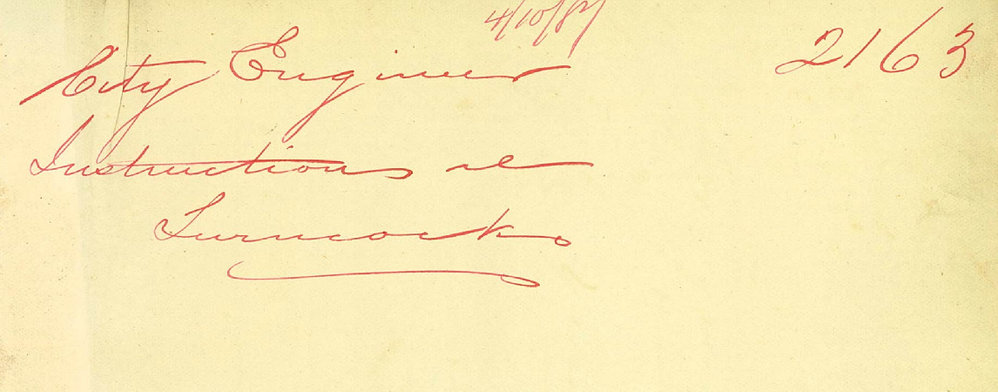 4/10/87
2163
City Engineer
Instructions re
Turncocks